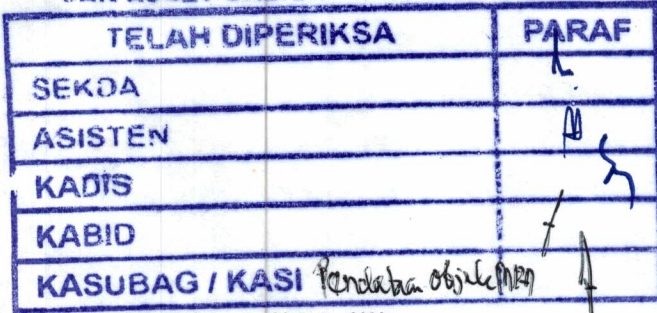 TELAH DIPERIKSA PARAF
SEKDA
ASISTEN
KADIS
KABID
KASUBAG / KASI Pendataan objek